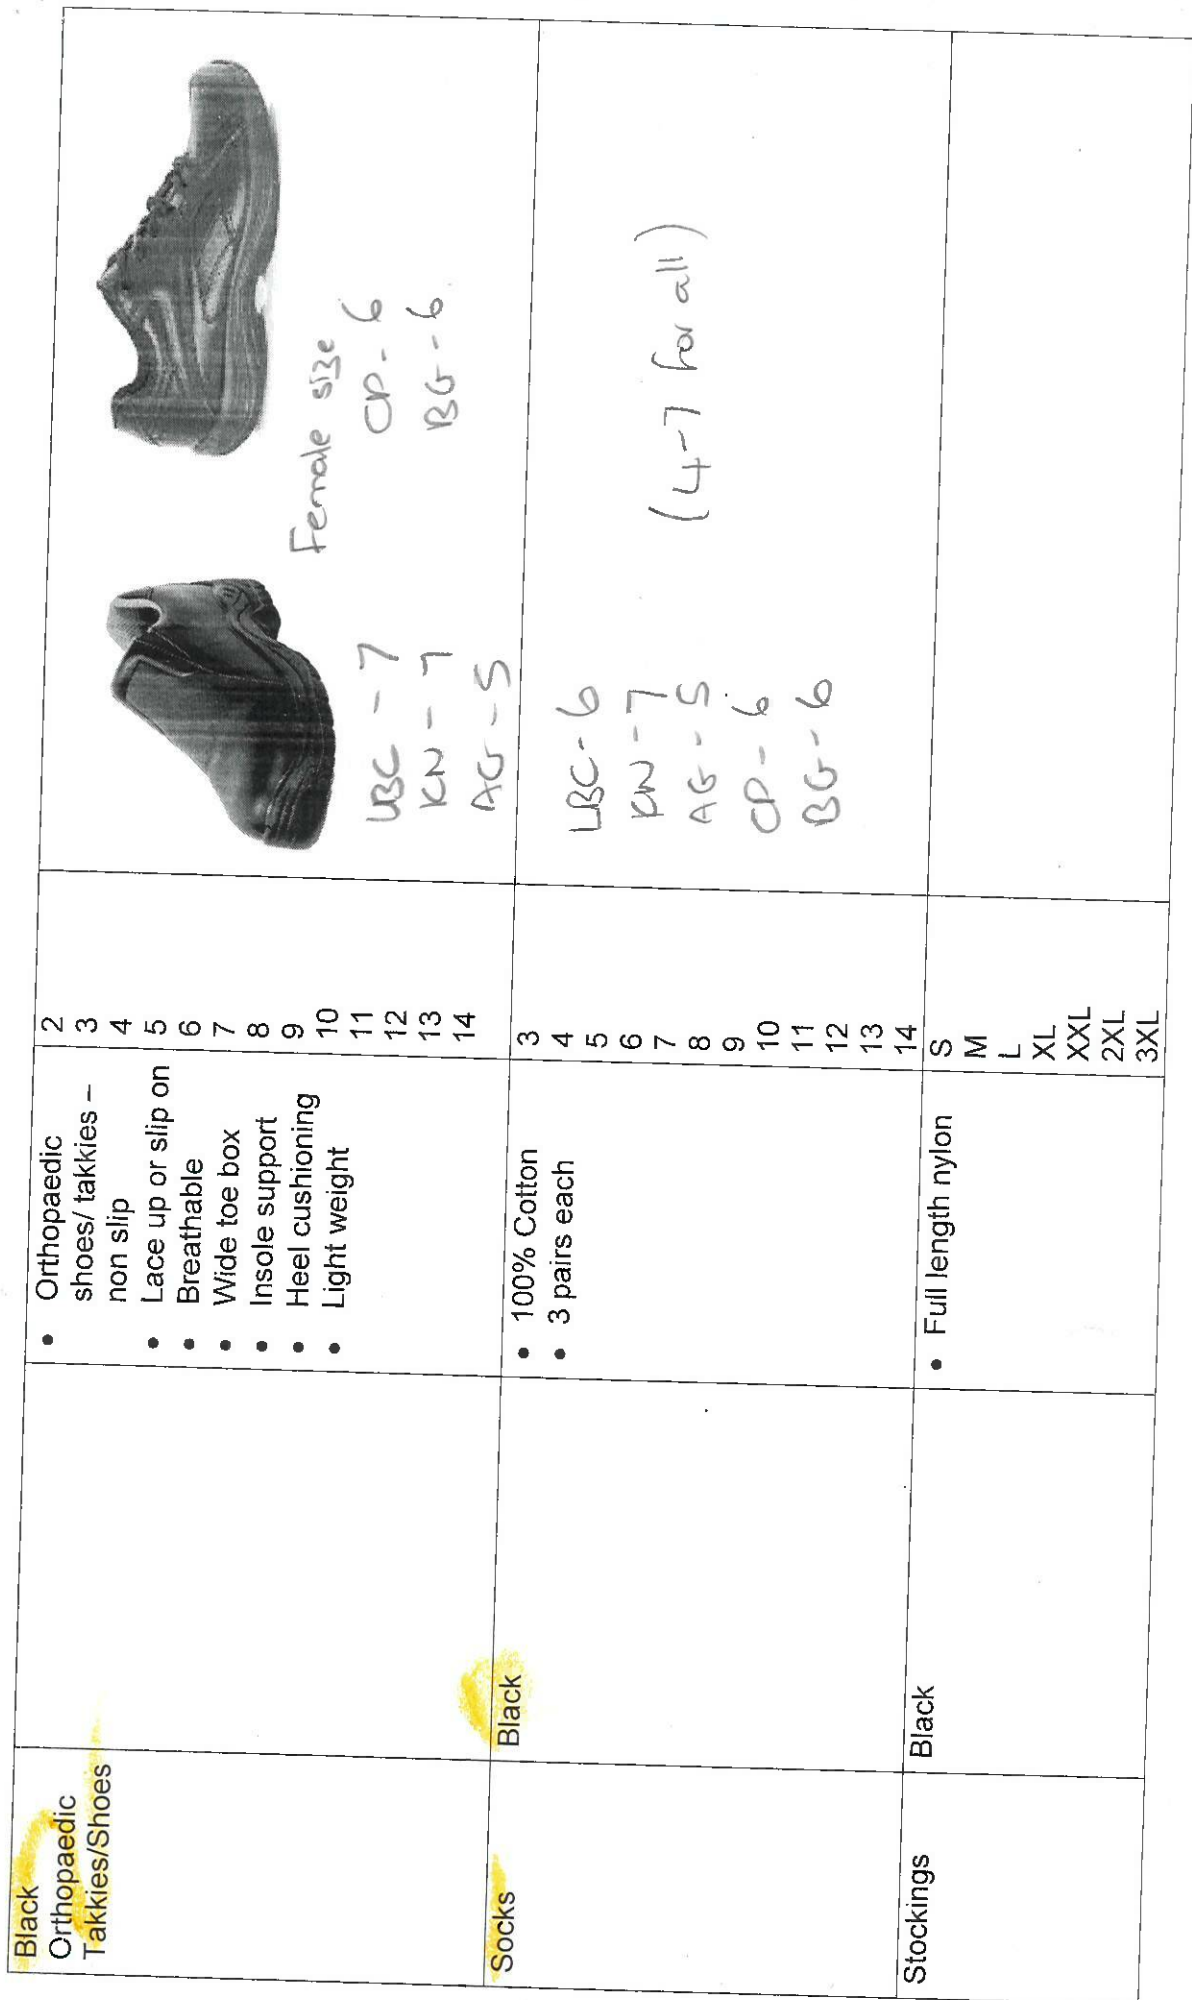 Black
Orthopaedic
Takkies/Shoes
• Orthopaedic
shoes/ takkies –
non slip
• Lace up or slip on
• Breathable
• Wide toe box
• Insole support
• Heel cushioning
• Light weight
2
3
4
5
6
7
8
9
10
11
12
13
14
Female size
UBC - 7
KN - 7
AG - 5
CP - 6
BG - 6
Socks
Black
• 100% Cotton
• 3 pairs each
3
4
5
6
7
8
9
10
11
12
13
14
UBC - 6
KN - 7
AG - 5
CP - 6
BG - 6
(4-7 for all)
Stockings
Black
• Full length nylon
S
M
L
XL
XXL
2XL
3XL